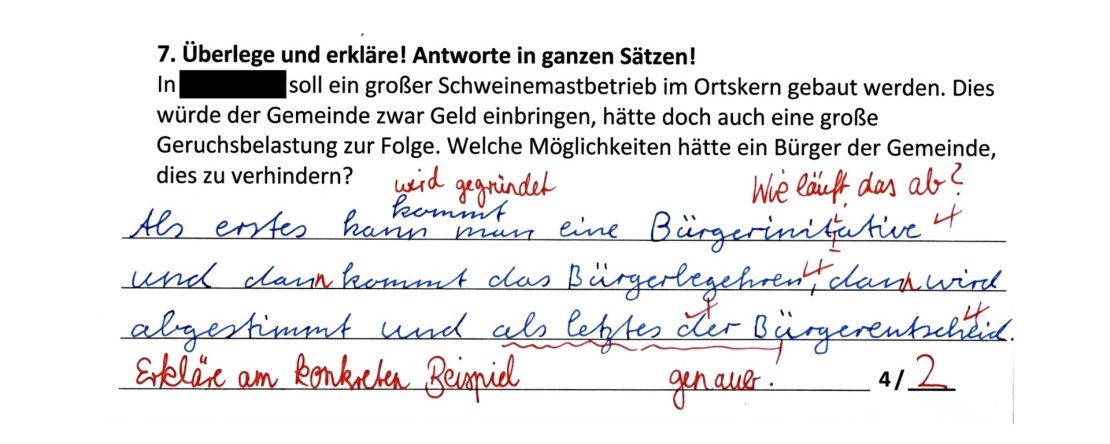 7. Überlege und erkläre! Antworte in ganzen Sätzen!
In soll ein großer Schweinemastbetrieb im Ortskern gebaut werden. Dies
würde der Gemeinde zwar Geld einbringen, hätte doch auch eine große
Geruchsbelastung zur Folge. Welche Möglichkeiten hätte ein Bürger der Gemeinde,
dies zu verhindern?
wird gegründet Wie läuft das ab?
kommt
Als erstes kann man eine Bürgerinitiative
und dann kommt das Bürgerbegehren, dann wird
abgestimmt und als letztes der Bürgerentscheid.
Erkläre am konkreten Beispiel genauer. 4/2